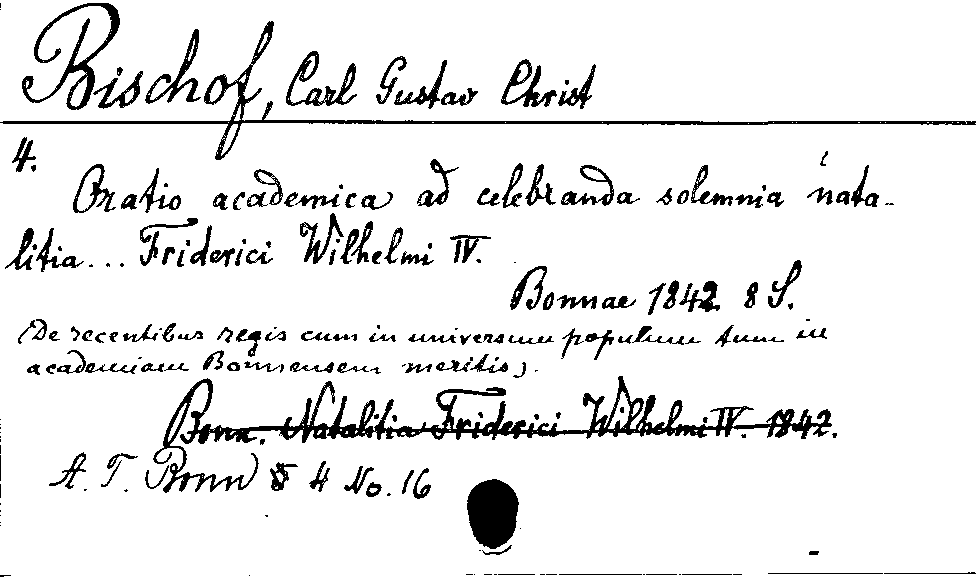 Bischof, Carl Gustav Christ
4.
Oratio academica ad celebranda solemnia nata-
litia... Friderici Wilhelmi IV.
Bonnae 1842. 8 S.
(De recentibus regis cum in universum populum tum in
academiam Bonnensem meritis).
Bonn. Natalitia Friderici Wilhelmi IV. 1842.
A. T. Bonn 4 No. 16